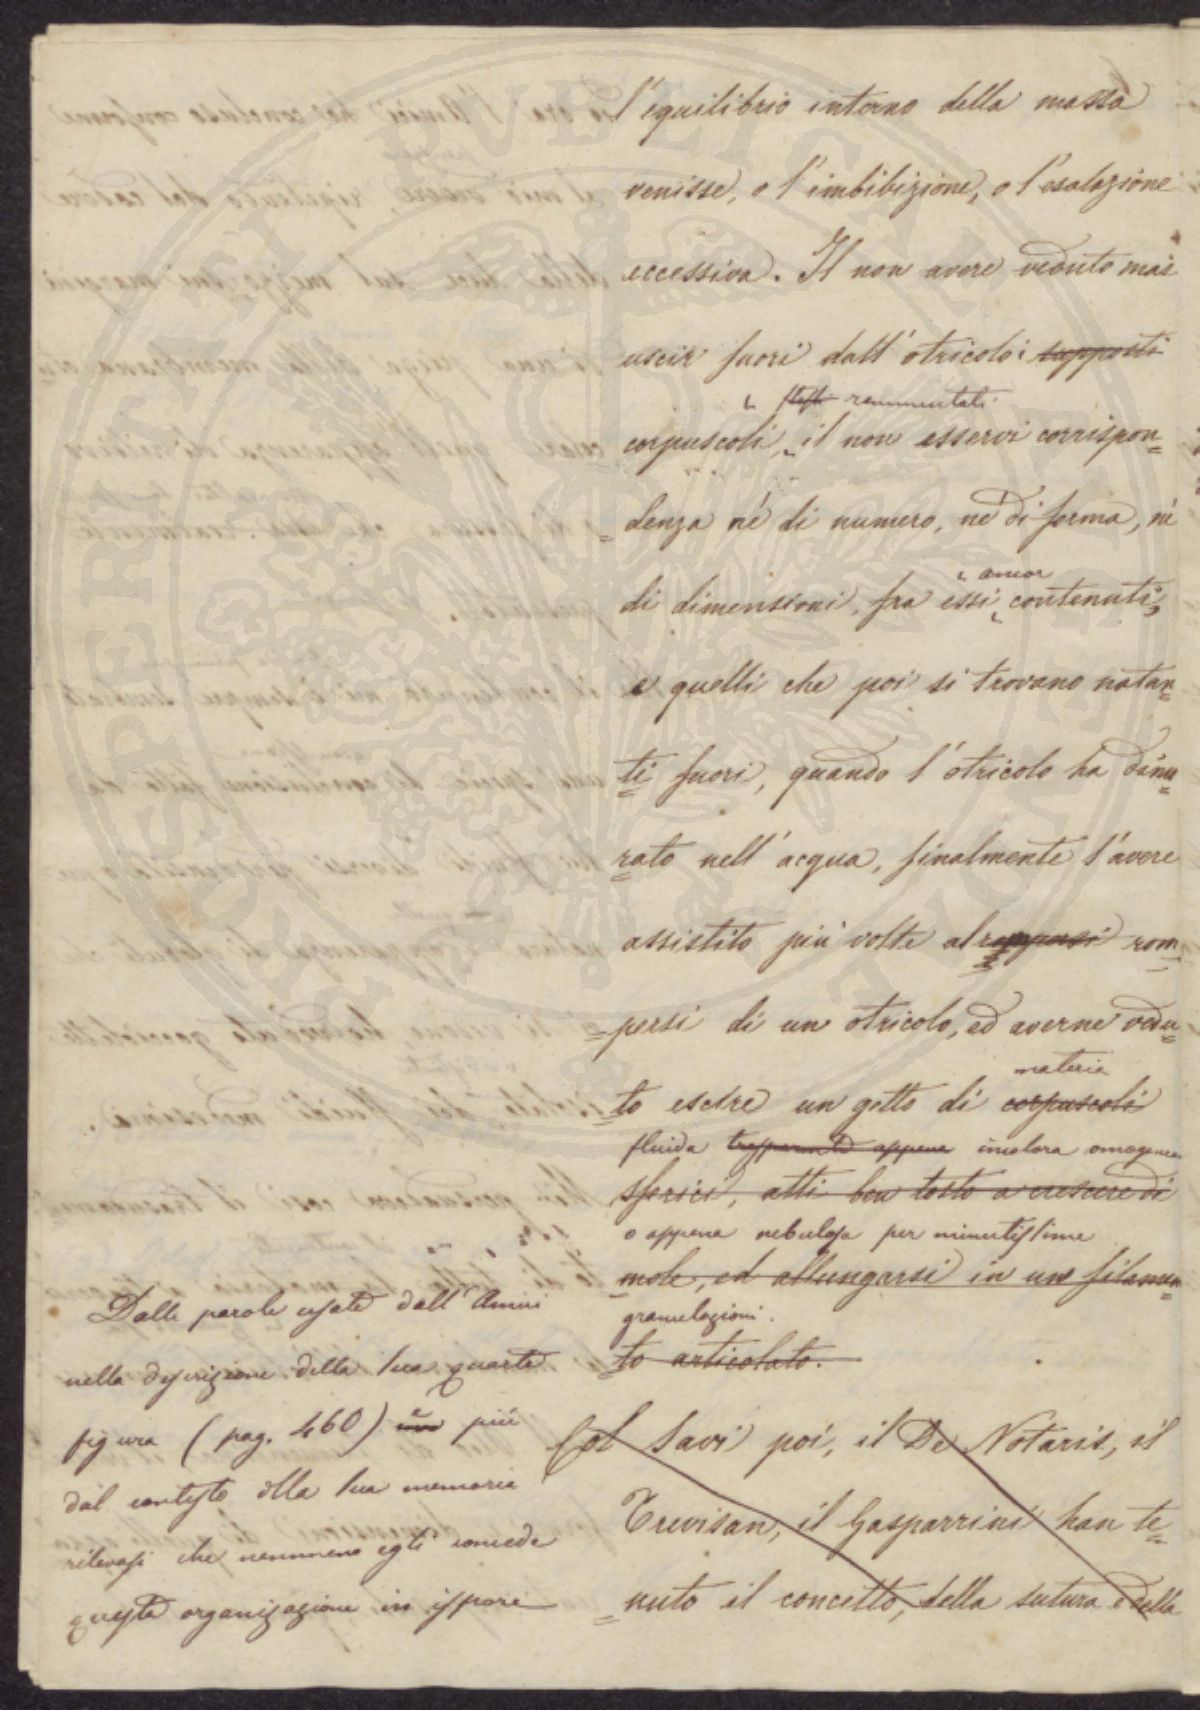 l'equilibrio interno della massa
venisse, o l'imbibizione, o l'esalazione
eccessiva. Il non avere veduto mai
uscir fuori dall'otricolo i supposti
rammentati
corpuscoli, il non esservi corrispon=
=denza nè di numero, nè di forma, nè
ancor
di dimensioni, fra essi contenuti,
e quelli che poi si trovano natan=
ti fuori, quando l'otricolo ha dimo=
rato nell'acqua, finalmente l'avere
assistito più volte al rom=
=persi di un otricolo, ed averne vedu=
materia
to escire un getto di corpuscoli
fluida trasparente appena incolora omogenea
sferici, atti ben tosto a crescere di
o appena nebulosa per minutissime
mole, ed allungarsi in un filamen=
granulazioni.
to articolato.
Col Savi poi, il De Notaris, il
Trevisan, il Gasparrini han te=
=nuto il concetto, della sutura e della
Dalle parole usate dall'Amici
nella descrizione della sua quarta
figura (pag. 460) e più
dal contesto della sua memoria
rilevasi che nemmeno egli concede
questa organizazione in ispore